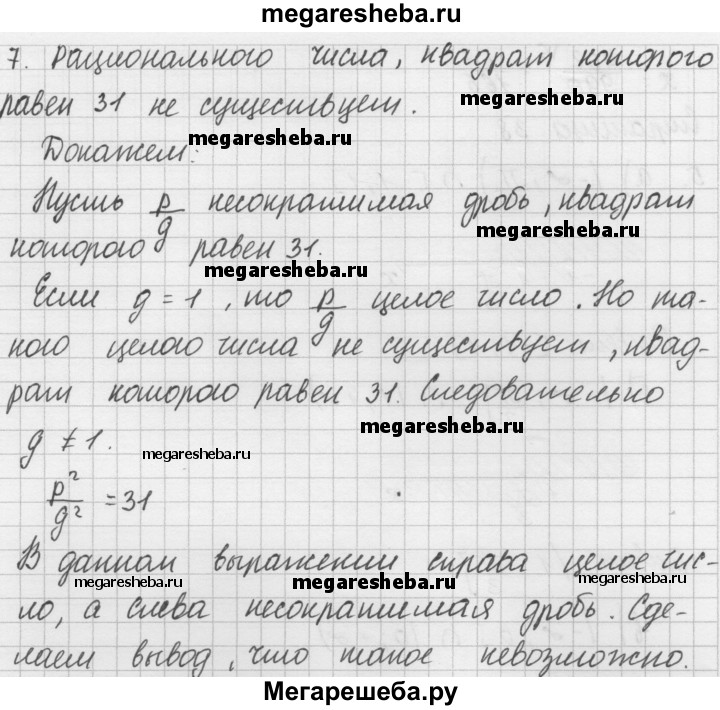 megaresheba.ru
7. Рационального числа, квадрат которого
равен 31 не существует.
megaresheba.ru
megaresheba.ru
Докажем:
Пусть p/g несократимая дробь, квадрат
megaresheba.ru
которого равен 31.
megaresheba.ru
Если g = 1, то p/g целое число. Но та-
кого целого числа не существует, квад-
рат которого равен 31. Следовательно
megaresheba.ru
g ≠ 1.
megaresheba.ru
p²/g² = 31
В данном выражении справа целое чис-
megaresheba.ru
megaresheba.ru
megaresheba.ru
ло, а слева несократимая дробь. Сде-
лаем вывод, что такое невозможно.
Мегарешеба.ру